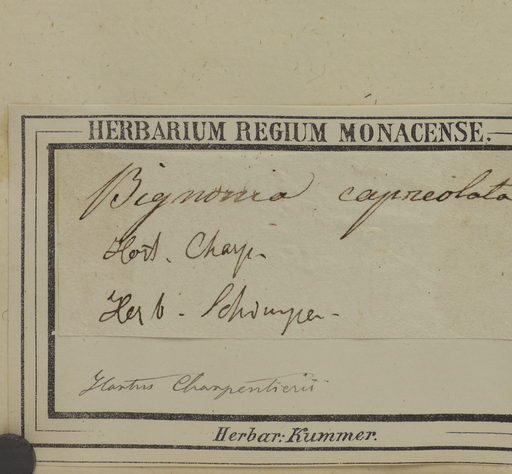 HERBARIUM REGIUM MONACENSE.
Bignonia capreolata
Hort. Charp.
Herb. Schimper.
Hortus Charpentierii
Herbar: Kummer.